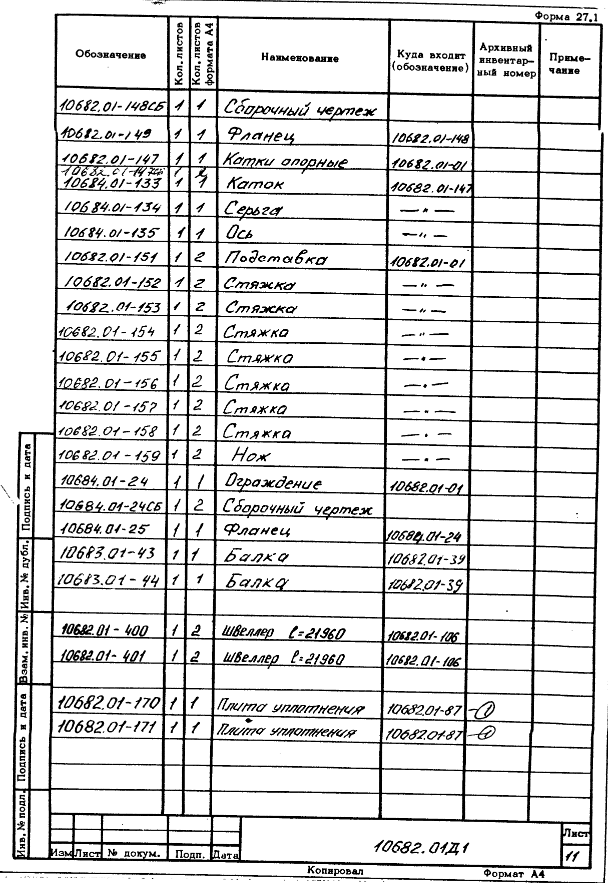 Форма 27.1
Обозначение Кол. листов Кол. листов формата А4 Наименование Куда входит (обозначение) Архивный инвентарный номер Примечание
10682.01-148СБ 1 1 Сборочный чертеж
10682.01-149 1 1 Фланец 10682.01-148
10682.01-147 1 1 Катки опорные 10682.01-01
10682.01-147СБ 1 2
10684.01-133 1 1 Каток 10682.01-147
10684.01-134 1 1 Серьга —"—
10684.01-135 1 1 Ось —"—
10682.01-151 1 2 Подставка 10682.01-01
10682.01-152 1 2 Стяжка —"—
10682.01-153 1 2 Стяжка —"—
10682.01-154 1 2 Стяжка —"—
10682.01-155 1 2 Стяжка —"—
10682.01-156 1 2 Стяжка —"—
10682.01-157 1 2 Стяжка —"—
10682.01-158 1 2 Стяжка —"—
10682.01-159 1 2 Нож —"—
10684.01-24 1 1 Ограждение 10682.01-01
10684.01-24СБ 1 2 Сборочный чертеж
10684.01-25 1 1 Фланец 10684.01-24
10683.01-43 1 1 Балка 10682.01-39
10683.01-44 1 1 Балка 10682.01-39
10682.01-400 1 2 Швеллер ℓ=21960 10682.01-106
10682.01-401 1 2 Швеллер ℓ=21960 10682.01-106
10682.01-170 1 1 Плита уплотнения 10682.01-87 –①
10682.01-171 1 1 Плита уплотнения 10682.01-87 –①
Подпись и дата
Инв. № дубл.
Взам. инв. №
Подпись и дата
Инв. № подл.
Изм Лист № докум. Подп. Дата
10682.01Д1
Лист
11
Копировал Формат А4